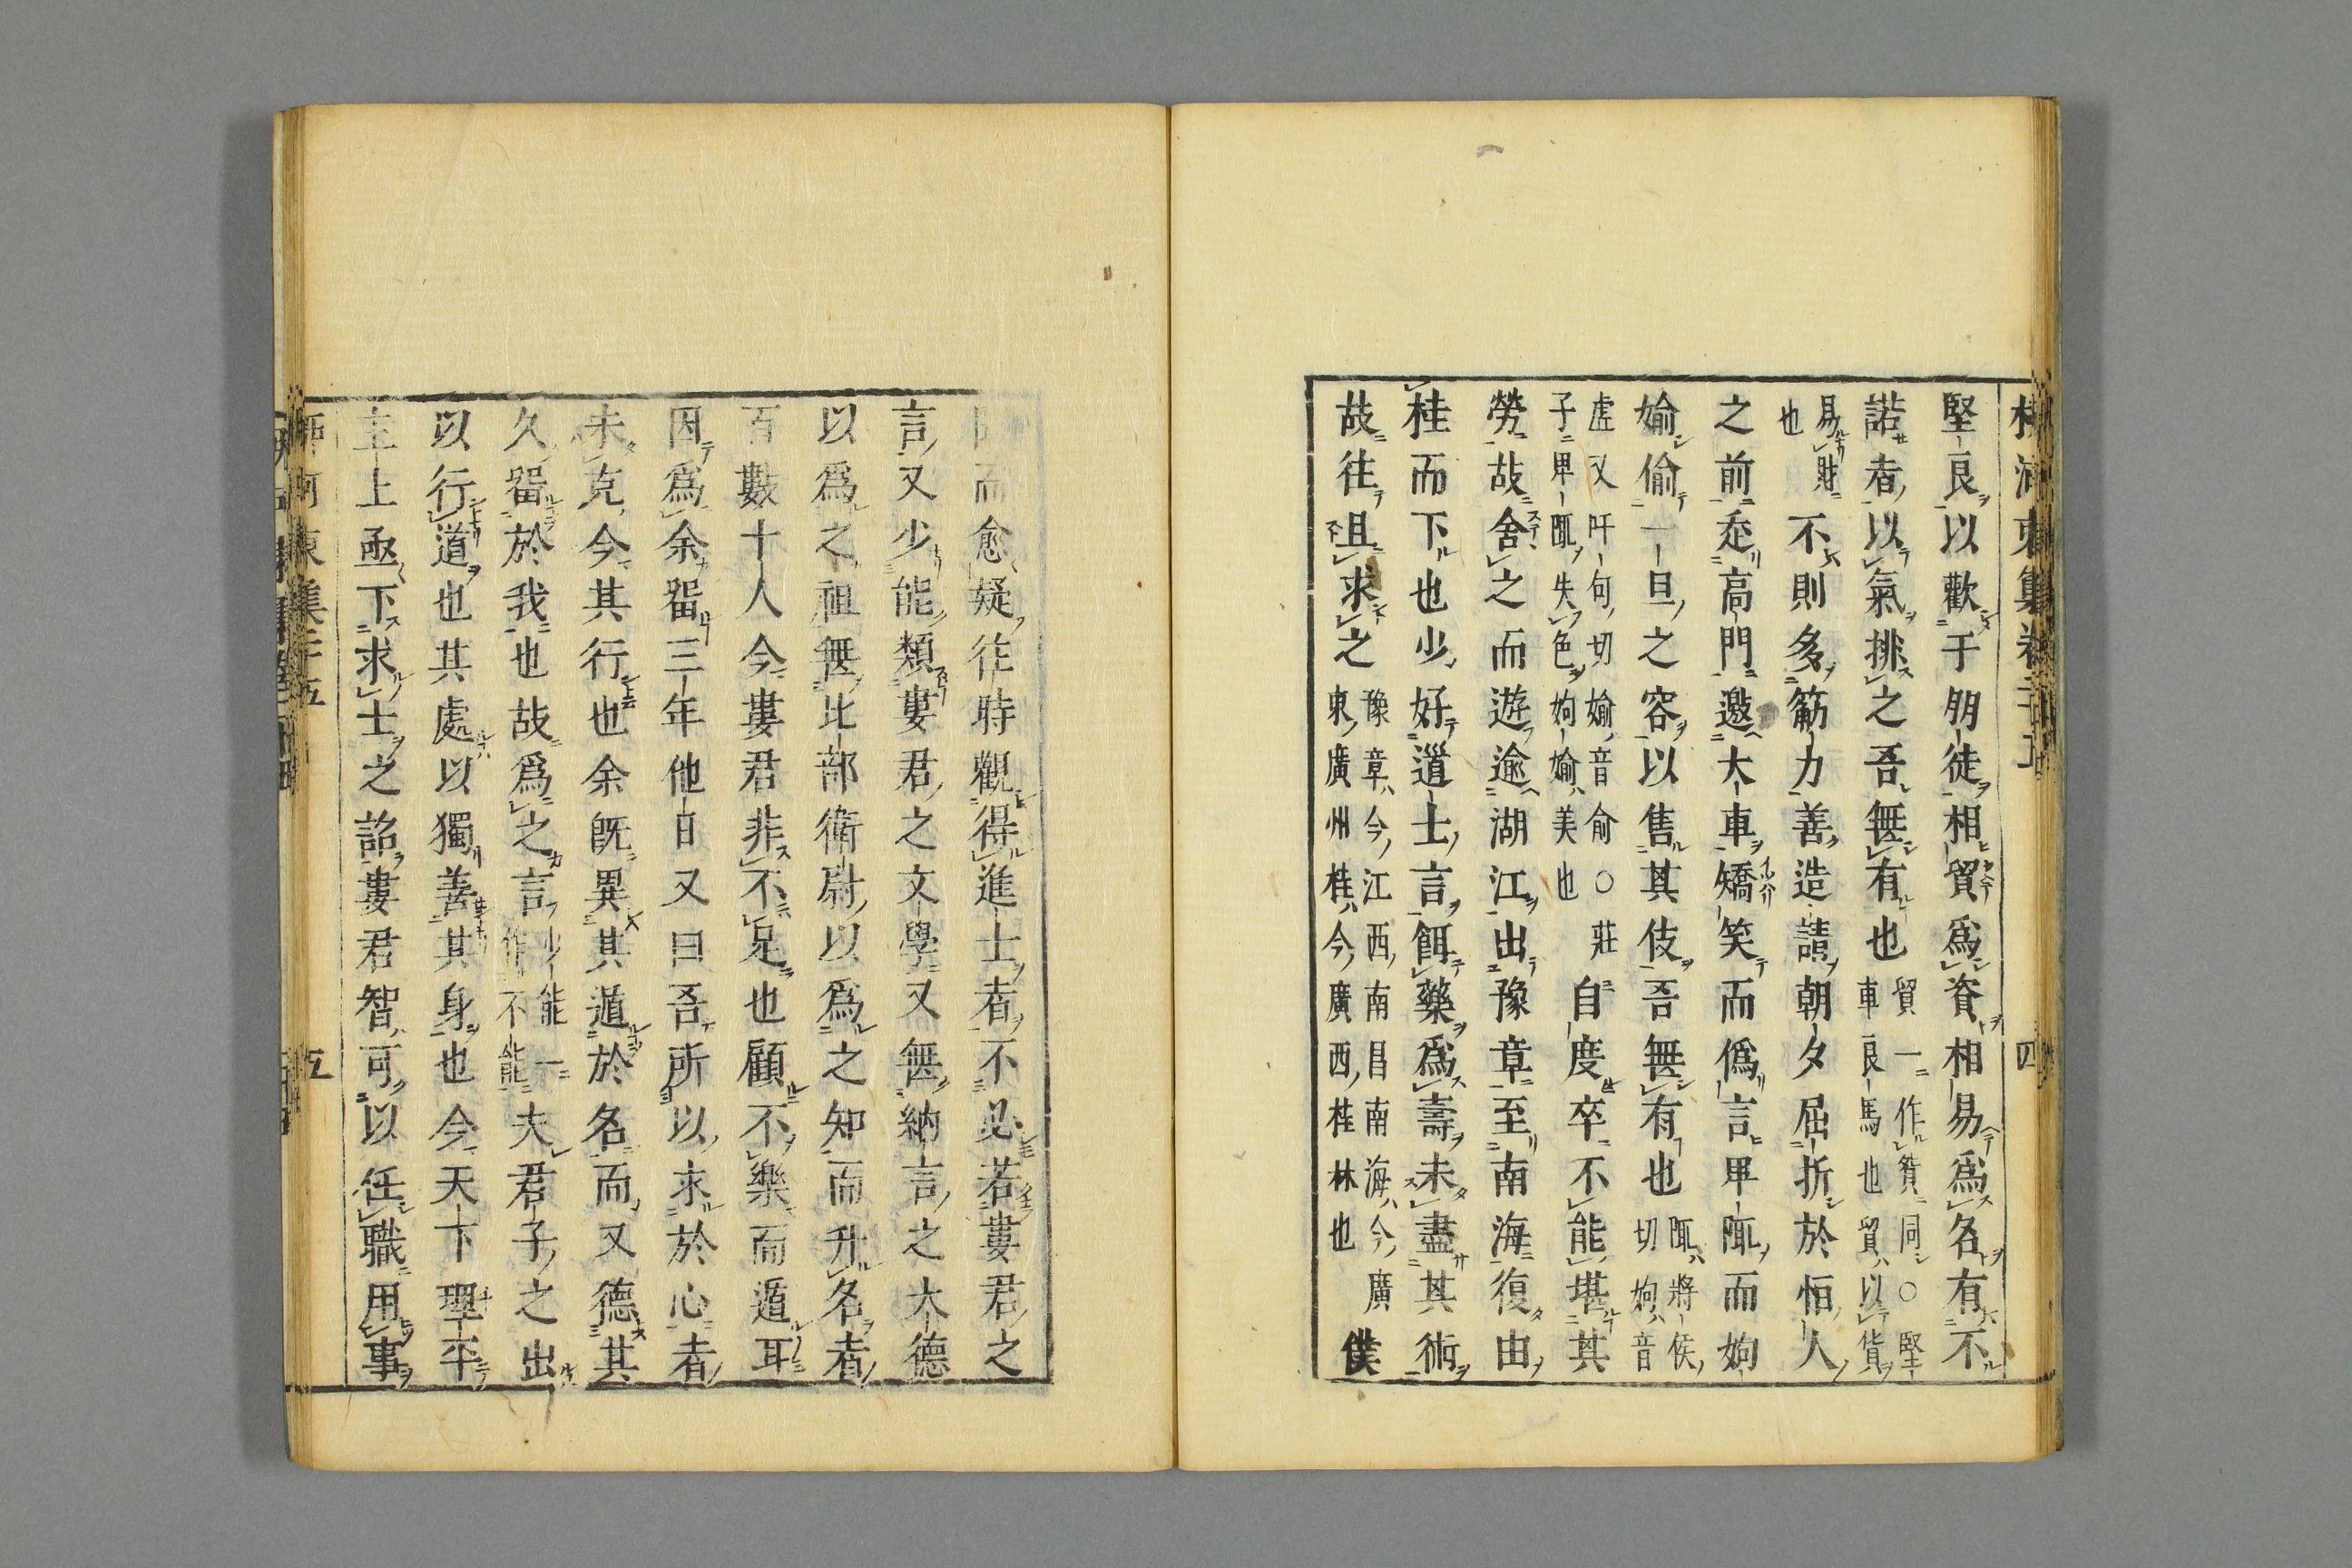 堅良以歡于朋徒相貿爲資相易爲名有不
諾者以氣排之吾無有也貿一作贊同○堅車良馬也貿以貨
易財也不則多筋力善造請朝夕屈折於恒人
之前走高門邀大車矯笑而僞言卑陬而姁
媮偷一旦之容以售其伎吾無有也陬將侯切姁音
虛又吁句切媮音俞○莊子卑陬失色姁媮美也自度卒不能堪其
勞故舍之而遊逾湖江出豫章至南海復由
桂而下也少好道士言餌藥爲壽未盡其術
故往且求之豫章今江西南昌南海今廣東廣州桂今廣西桂林也僕
而愈疑往時觀得進士者不必若婁君之
言又少能類婁君之文學又無納言之大德
以爲之祖無比部衛尉以爲之知而升名者
百數十人今婁君非不足也顧不樂而遁耳
因爲余留三年他日又曰吾所以求於心者
未克今其行也余既異其遁於名而又德其
久留於我也故爲之言少能一作不能夫君子之出
以行道也其處以獨善其身也今天下理平
主上亟下求士之詔婁君智可以任職用事
河東集二十五
五